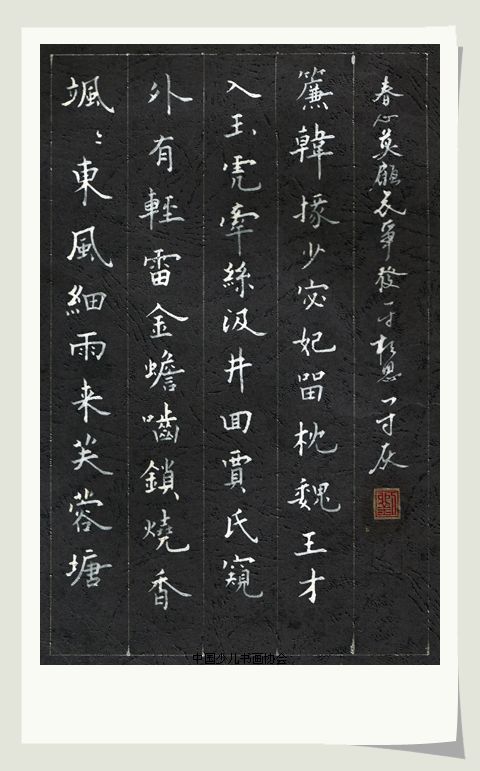 颯〻東風細雨来芙蓉塘
外有輕雷金蟾嚙鎖燒香
入玉虎牽絲汲井回賈氏窺
簾韓掾少宓妃留枕魏王才
春心莫願花爭發一寸相思一寸灰
中国少儿书画协会